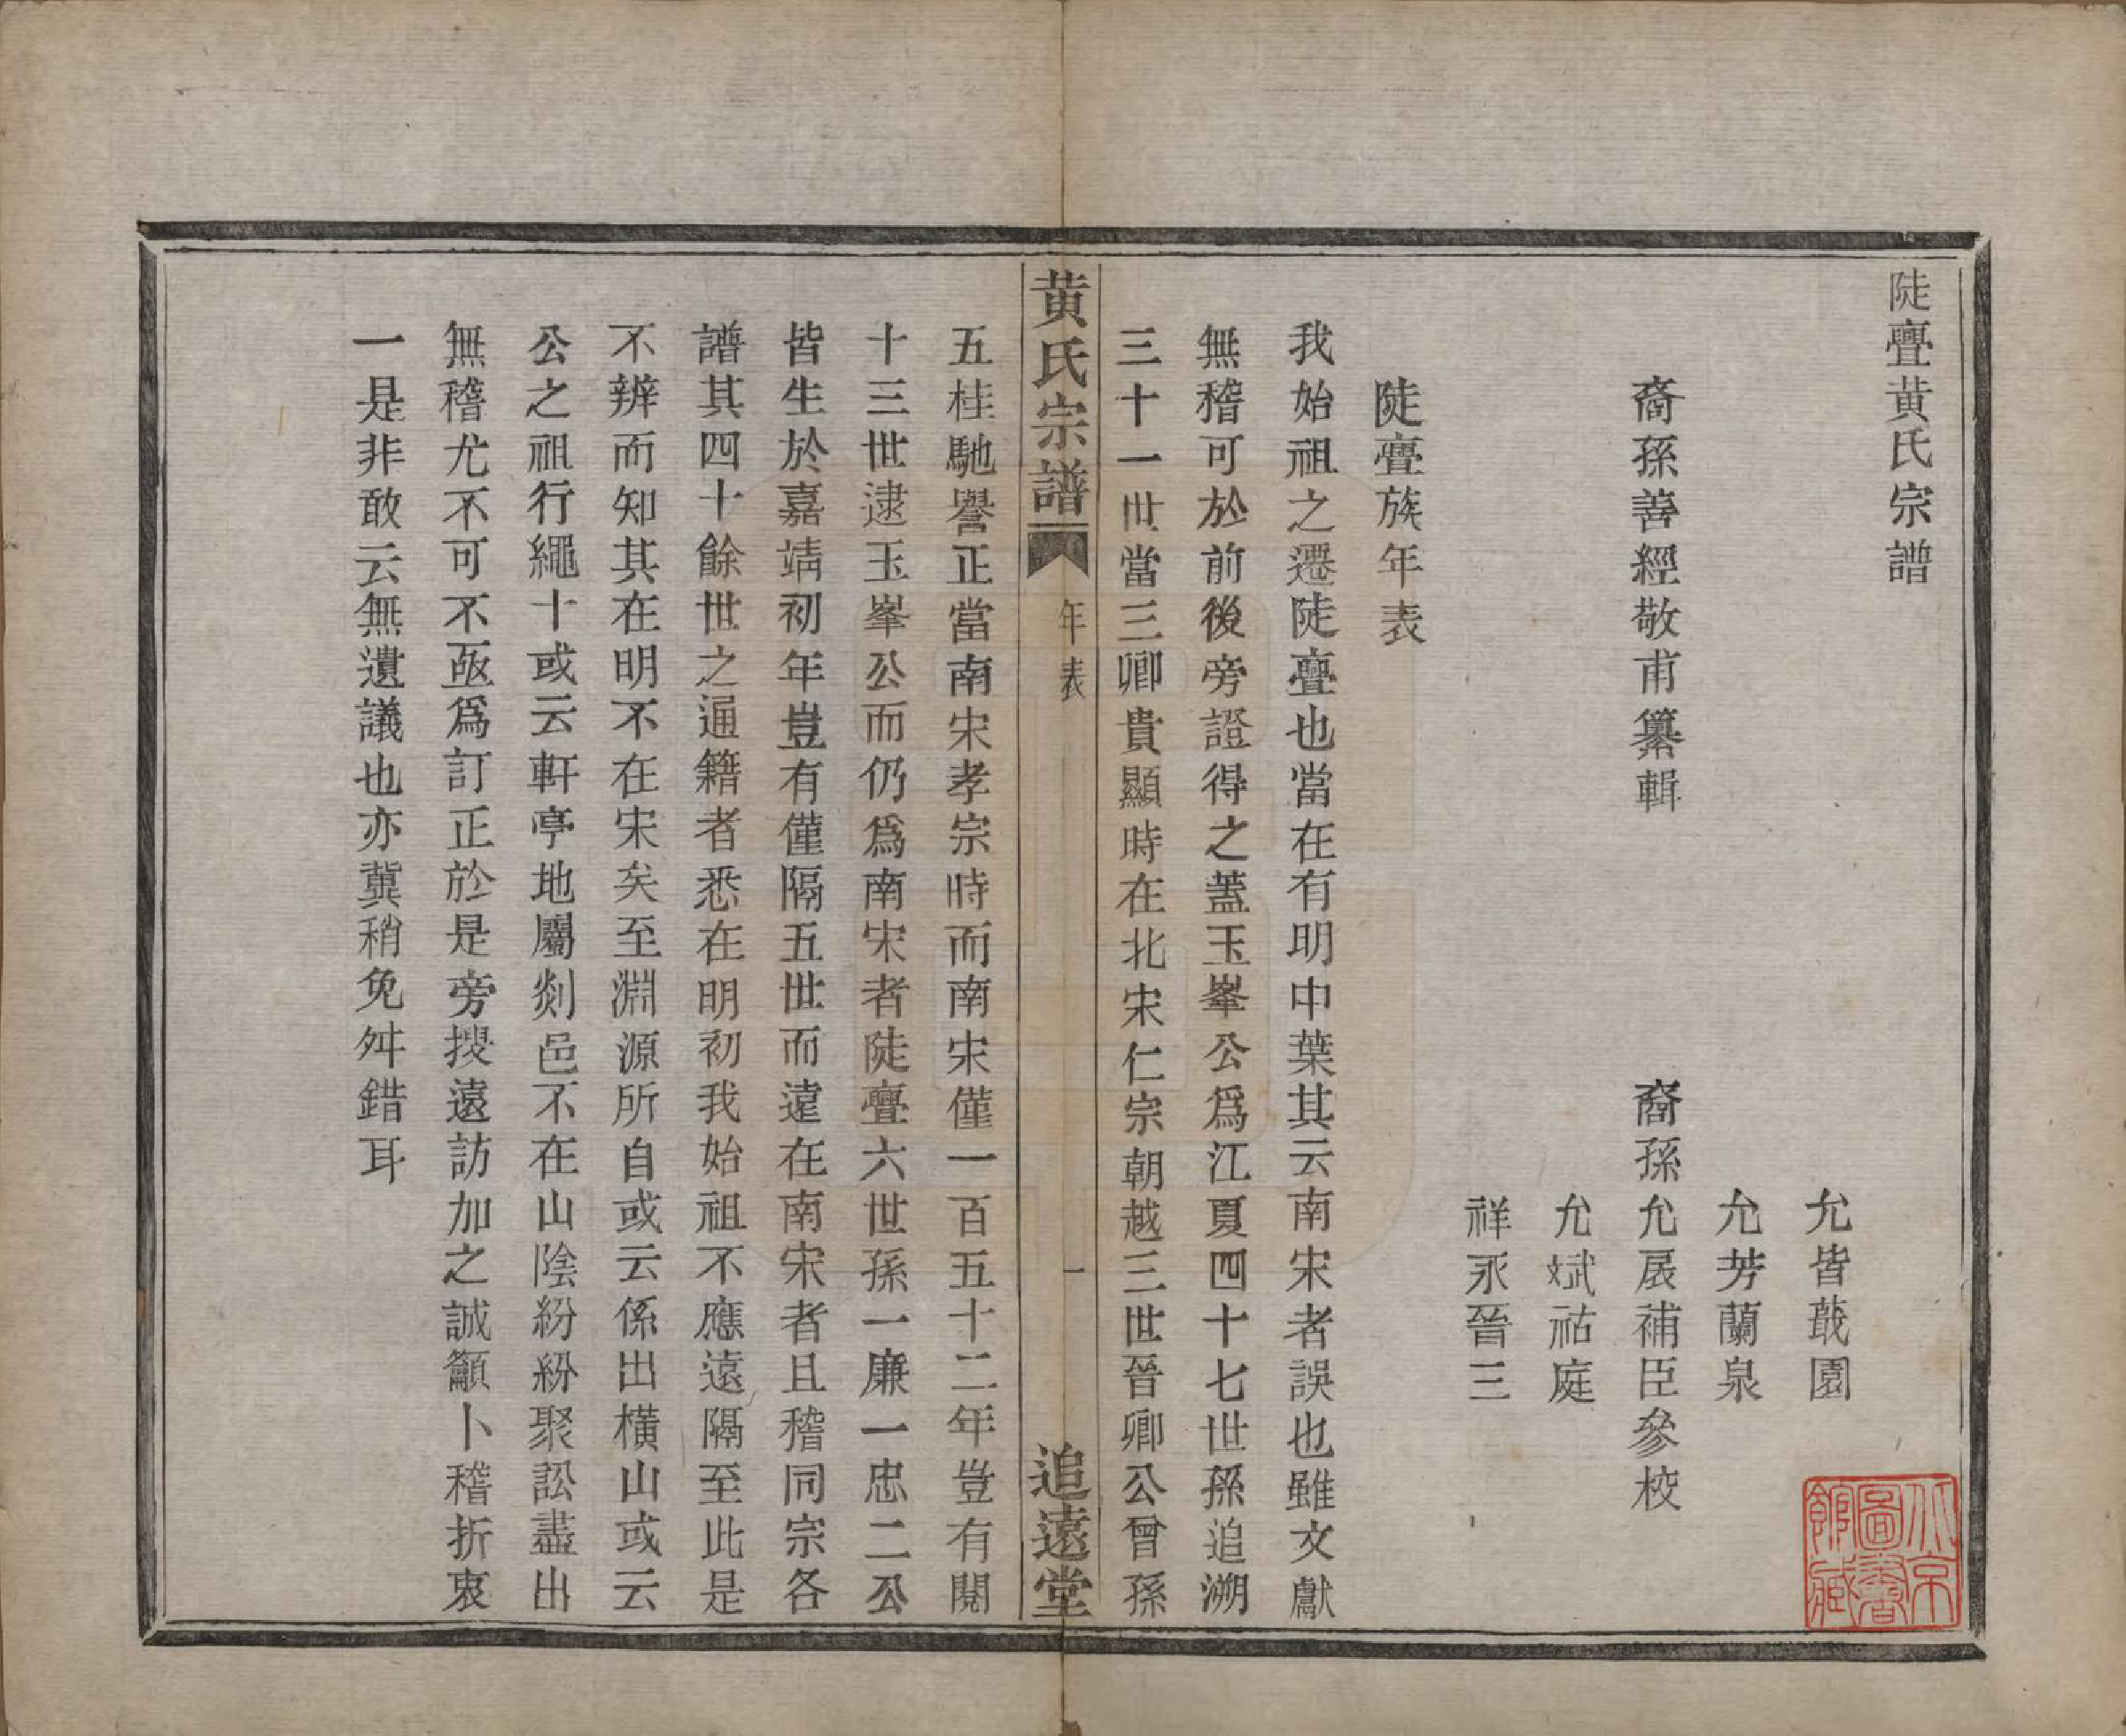 陡亹黄氏宗譜
允皆蕺園
允芳蘭泉
裔孫善經敬甫纂輯　裔孫允扆補臣參校
允斌祜庭
祥永晉三
陡亹族年表
我始祖之遷陡亹也當在有明中葉其云南宋者誤也雖文獻
無稽可於前後旁證得之蓋玉峯公爲江夏四十七世孫追溯
三十一世當三卿貴顯時在北宋仁宗朝越三世晉卿公曾孫
黄氏宗譜　年表　一　追遠堂
五桂馳譽正當南宋孝宗時而南宋僅一百五十二年豈有閱
十三世逮玉峯公而仍爲南宋者陡亹六世孫一廉一忠二公
皆生於嘉靖初年豈有僅隔五世而遠在南宋者且稽同宗各
譜其四十餘世之通籍者悉在明初我始祖不應遠隔至此是
不辨而知其在明不在宋矣至淵源所自或云係出橫山或云
公之祖行繩十或云軒亭地屬剡邑不在山陰紛紛聚訟盡出
無稽尤不可不亟爲訂正於是旁搜遠訪加之誠籲卜稽折衷
一是非敢云無遺議也亦冀稍免舛錯耳
北京圖書館藏